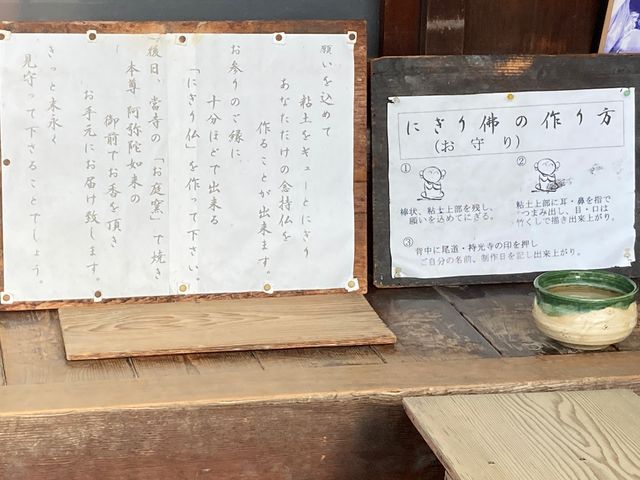 願いを込めて
粘土をキューとにぎり
あなただけの念持仏を
作ることが出来ます。
お参りのご縁に
十分ほどで出来る
「にぎり仏」を作って下さい。
後日、当寺の「お庭窯」で焼き
本尊 阿弥陀如来の
御前でお香を頂き
お手元にお届け致します。
きっと末永く
見守って下さることでしょう。
にぎり佛の作り方
(お守り)
①
棒状、粘土上部を残し、
願いを込めてにぎる。
②
粘土上部に耳・鼻を指で
つまみ出し、目・口は
竹くしで描き出来上がり。
③ 背中に尾道・持光寺の印を押し
ご自分の名前、制作日を記し出来上がり。